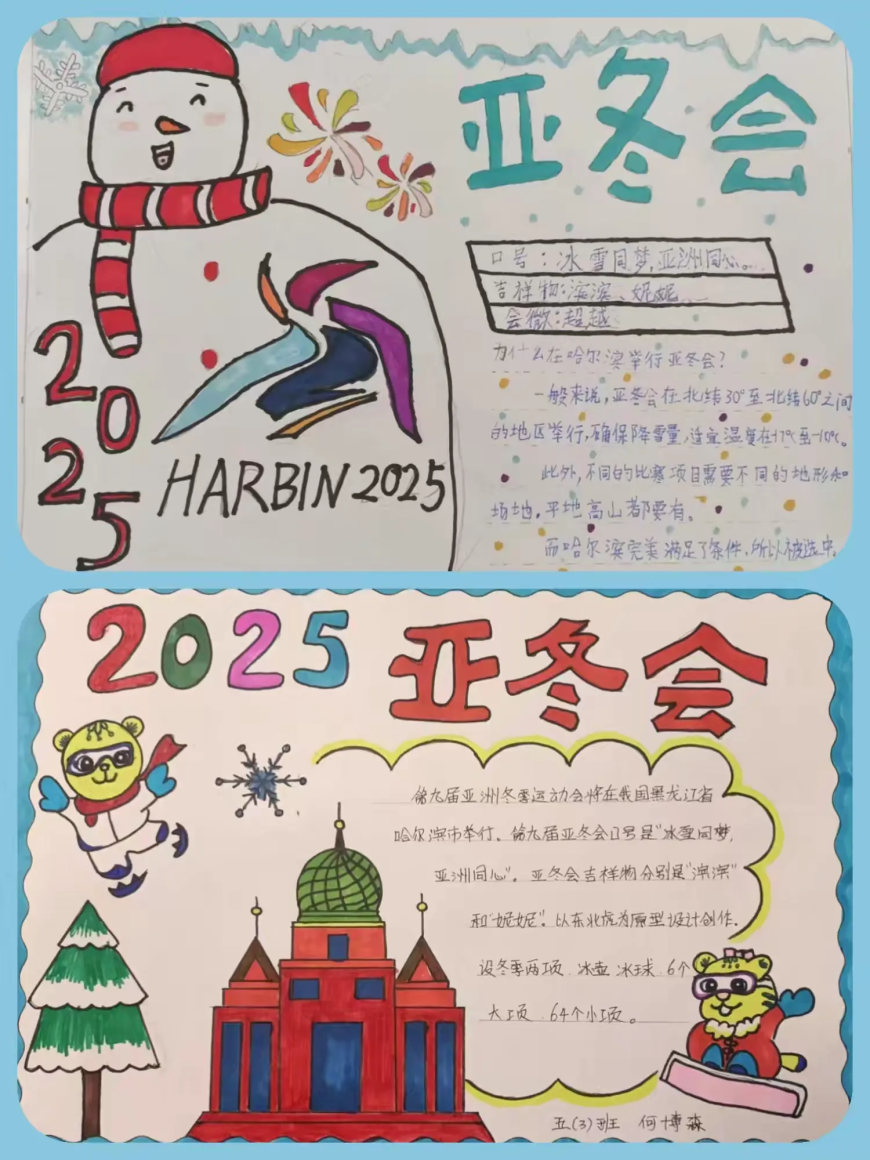 亚冬会
口号：冰雪同梦,亚洲同心。
吉祥物:滨滨、妮妮
会徽:超越
为什么在哈尔滨举行亚冬会?
一般来说,亚冬会在北纬30°至北纬60°之间
的地区举行,确保降雪量,适宜温度在-17℃至-10℃。
此外,不同的比赛项目需要不同的地形和
场地,平地高山都要有。
而哈尔滨完美满足了条件,所以被选中。
2025
HARBIN 2025
2025 亚冬会
第九届亚洲冬季运动会将在我国黑龙江省
哈尔滨市举行、第九届亚冬会口号是"冰雪同梦,
亚洲同心"。亚冬会吉祥物分别是"滨滨"
和"妮妮"。以东北虎为原型设计创作.
设冬季两项、冰壶、冰球、6个
大项、64个小项。
五(3)班 何博森